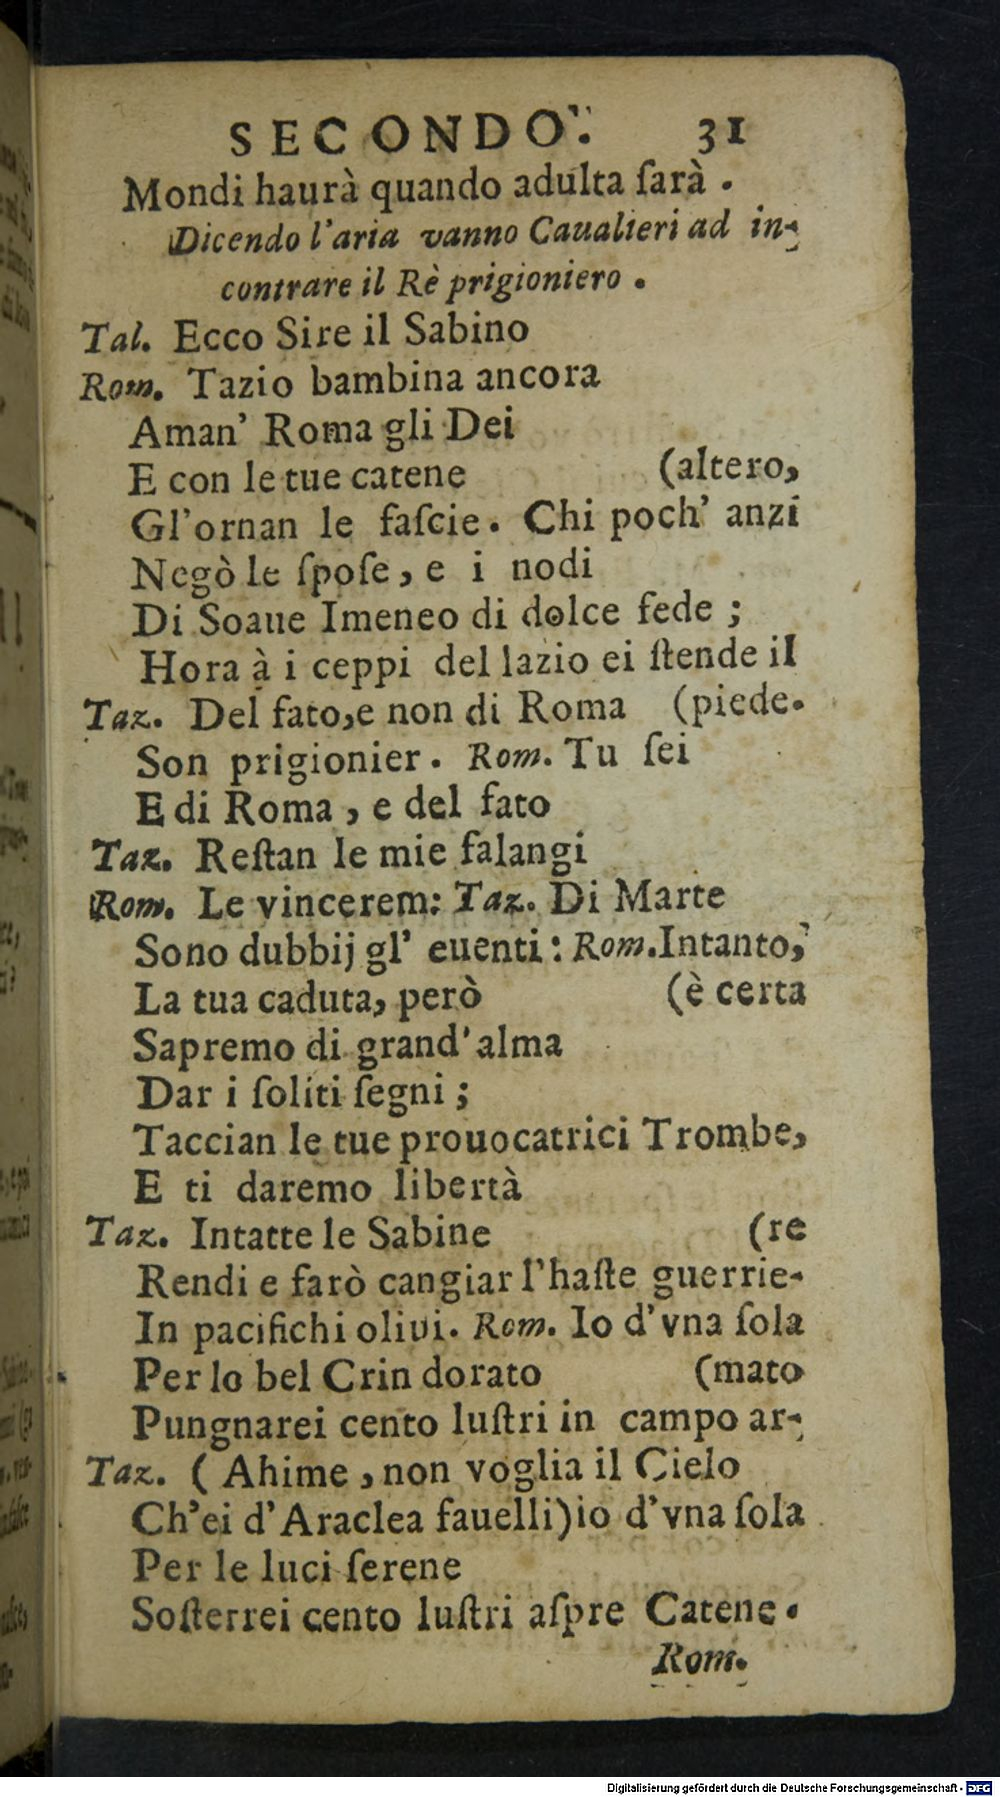 SECONDO. 31
Mondi haurà quando adulta ſarà .
Dicendo l'aria vanno Caualieri ad in-
contrare il Rè prigioniero .
Tal. Ecco Sire il Sabino
Rom. Tazio bambina ancora
Aman' Roma gli Dei
E con le tue catene (altero,
Gl'ornan le faſcie. Chi poch' anzi
Negò le ſpoſe, e i nodi
Di Soaue Imeneo di dolce fede ;
Hora à i ceppi del lazio ei ſtende il
Taz. Del fato,e non di Roma (piede.
Son prigionier. Rom. Tu ſei
E di Roma , e del fato
Taz. Reſtan le mie falangi
Rom. Le vincerem: Taz. Di Marte
Sono dubbij gl' euenti : Rom.Intanto,
La tua caduta, però (è certa
Sapremo di grand'alma
Dar i ſoliti ſegni ;
Taccian le tue prouocatrici Trombe,
E ti daremo libertà
Taz. Intatte le Sabine (re
Rendi e farò cangiar l'haſte guerrie-
In pacifichi oliui. Rom. Io d'vna ſola
Per lo bel Crin dorato (mato
Pungnarei cento luſtri in campo ar-
Taz. ( Ahime , non voglia il Cielo
Ch'ei d'Araclea fauelli)io d'vna ſola
Per le luci ſerene
Soſterrei cento luſtri aſpre Catene.
Rom.
Digitalisierung gefördert durch die Deutsche Forschungsgemeinschaft - DFG